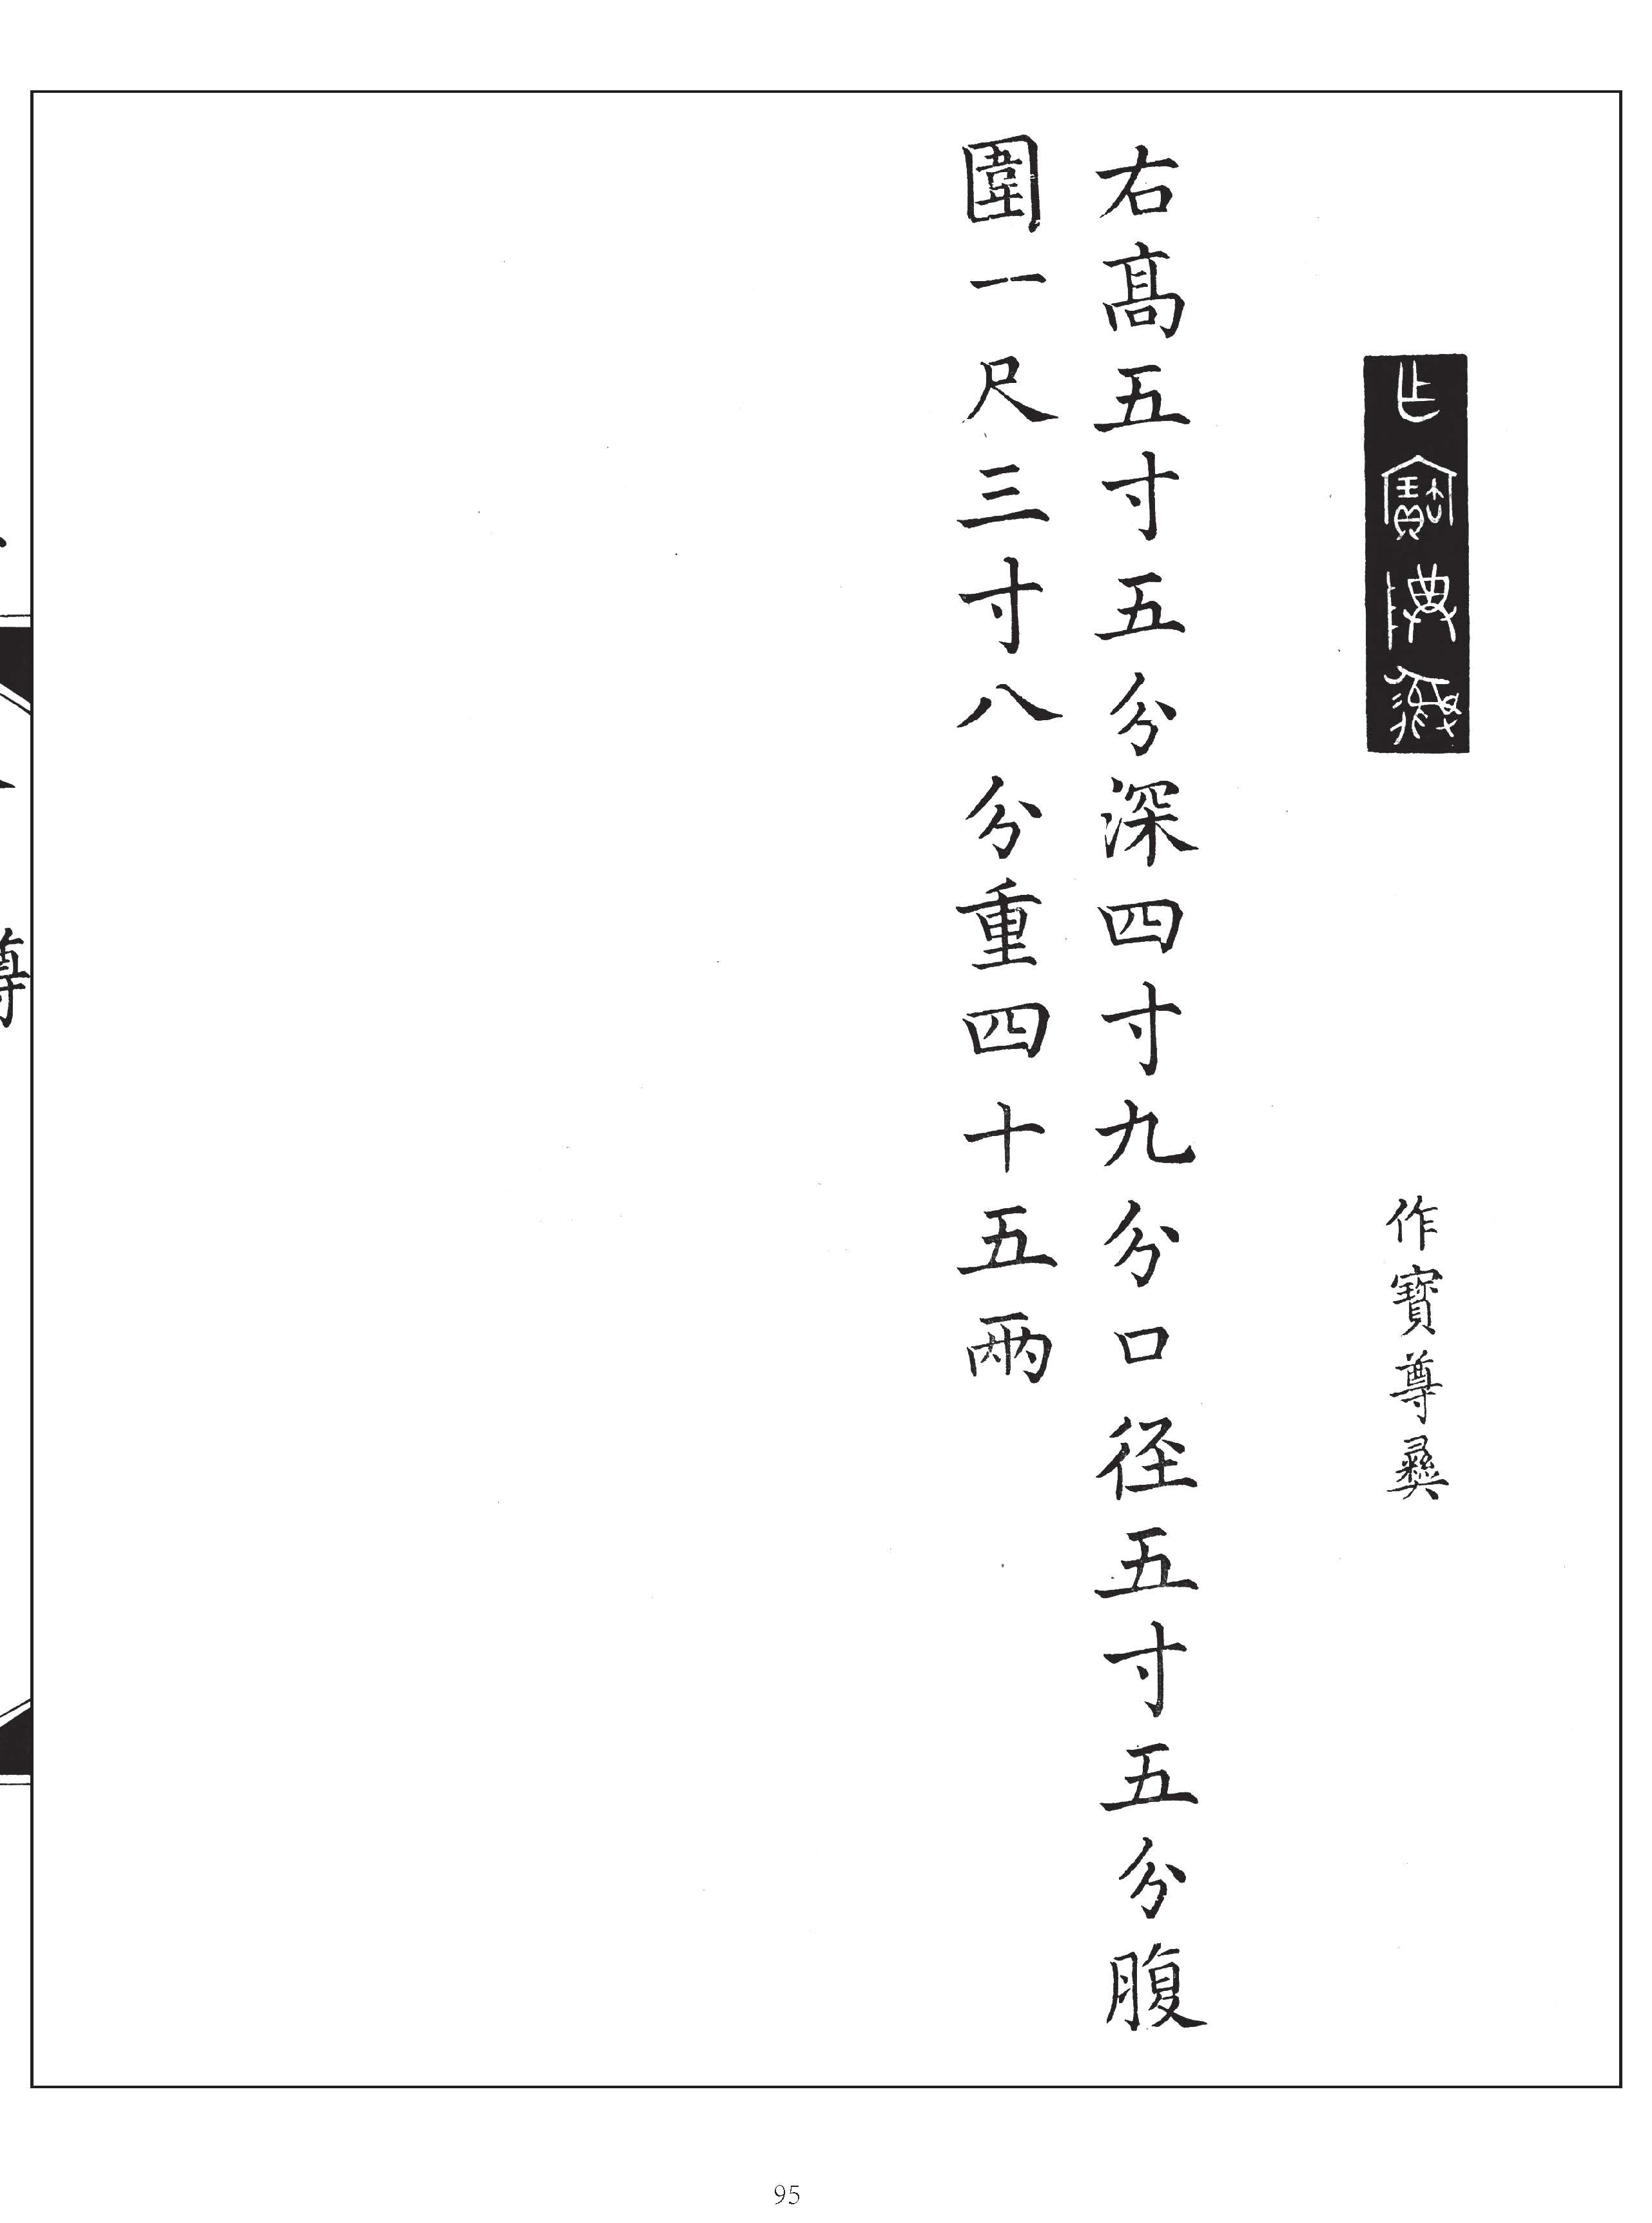 乍寶尊彝
作寶尊彝
右高五寸五分深四寸九分口徑五寸五分腹
圍一尺三寸八分重四十五兩
尊
95